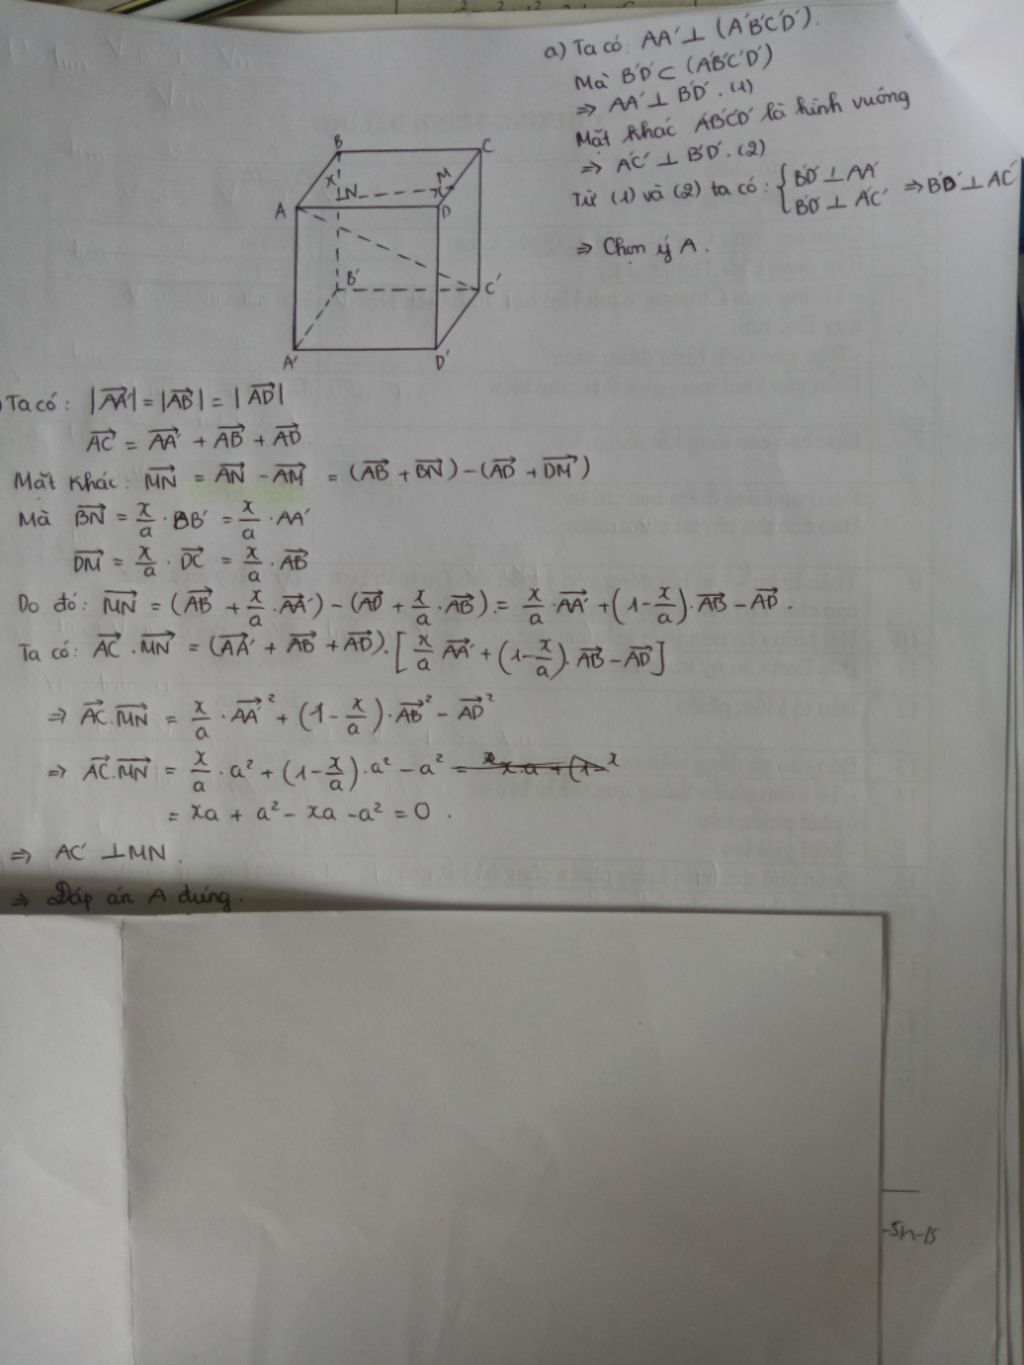 a) Ta có: AA' ⊥ (A'B'C'D').
Mà B'D' ⊂ (A'B'C'D')
⇒ AA' ⊥ B'D'. (1)
Mặt khác A'B'C'D' là hình vuông
⇒ A'C' ⊥ B'D'. (2)
Từ (1) và (2) ta có: { B'D' ⊥ AA'
B'D' ⊥ A'C' ⇒ B'D' ⊥ AC'
⇒ Chọn ý A.
B
C
x
N
M
x
A
D
B'
C'
A'
D'
Ta có: |AA'| = |AB| = |AD|
AC' = AA' + AB + AD
Mặt khác: MN = AN - AM = (AB + BN) - (AD + DM)
Mà BN = x/a · BB' = x/a · AA'
DM = x/a · DC = x/a · AB
Do đó: MN = (AB + x/a · AA') - (AD + x/a · AB) = x/a · AA' + (1 - x/a) · AB - AD.
Ta có: AC' . MN = (AA' + AB + AD). [x/a AA' + (1 - x/a) . AB - AD]
⇒ AC'. MN = x/a · AA'² + (1 - x/a) · AB² - AD²
⇒ AC'. MN = x/a · a² + (1 - x/a) · a² - a²
= xa + a² - xa - a² = 0 .
⇒ AC' ⊥ MN.
⇒ Đáp án A đúng.
-5n-15